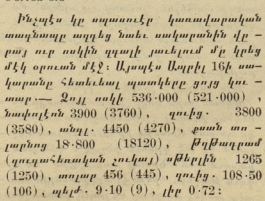 Ինչպէս կը սպասուէր կառավարական
տագնապը ազդեց նաեւ սակարանին վը -
րայ ուր ոսկին զգալի յաւելում մը կրեց
մէկ օրուան մէջ։ Այսպէս Ապրիլ 16ի սա-
կարանը հետեւեալ պատկերը ցոյց կու -
տար.— Զոյլ ոսկի 536·000 (521·000) ,
նափոլէոն 3900 (3760), զուից. 3800
(3580), անգլ. 4450 (4270), քսան տո -
լարնոց 18·800 (18120), Թղթադրամ
(զուգահեռական շուկայ) սթերլին 1265
(1250), տոլար 456 (445), զուից. 108·50
(106), պելժ. 9·10 (9), լիր 0·72։